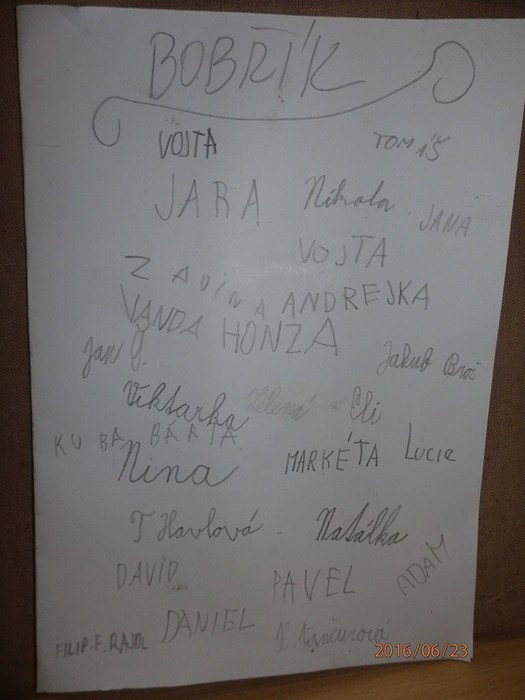 BOBŘÍK
VOJTA TOMÁŠ
JARA Nikola JANA
VOJTA
ZADINA ANDREJKA
VANDA HONZA
Jan J. Jakub Brož
Viktorka Eli
KUBA BÁRTA
Nina MARKÉTA Lucie
T Havlová Natálka
DAVID PAVEL ADAM
DANIEL
FILIP.F.
2016/06/23